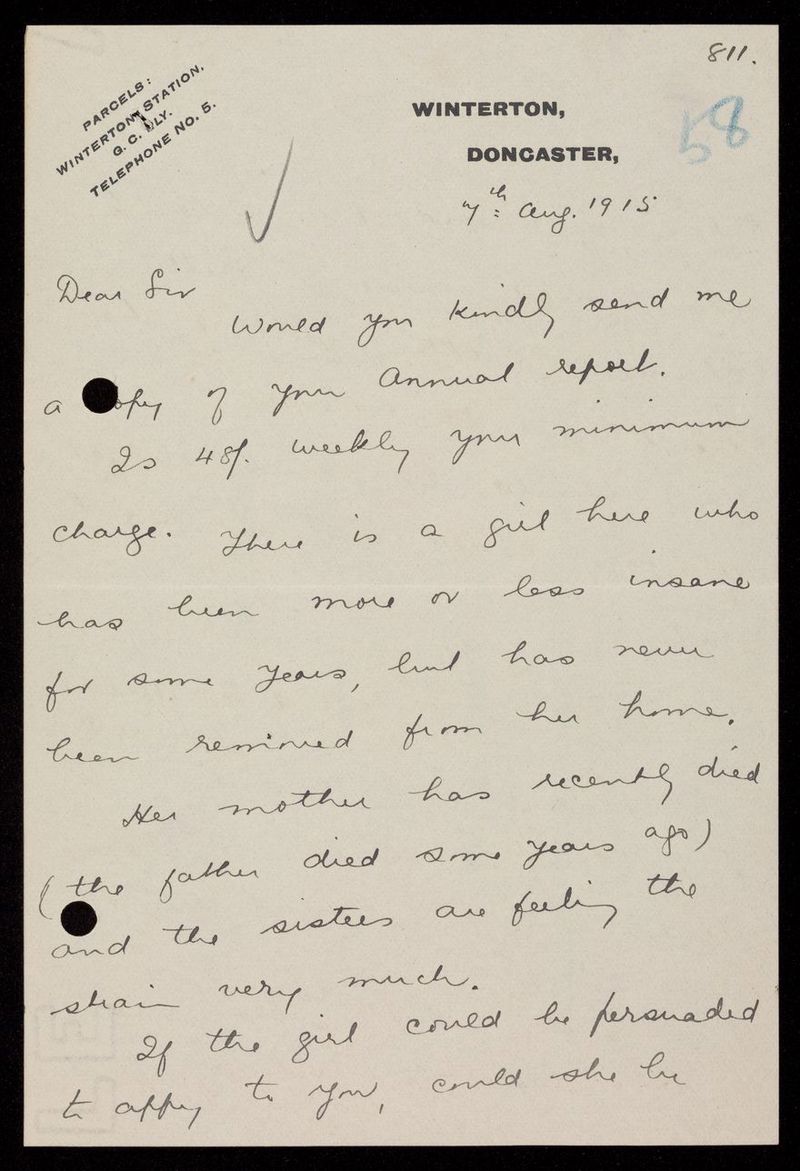 811.
PARCELS:
WINTERTON STATION,
G. C. RLY.
TELEPHONE NO. 5.
WINTERTON,
DONCASTER,
58
7th Aug. 1915
Dear Sir
Would you kindly send me
a copy of your Annual report.
Is 48/- weekly your minimum
charge. There is a girl here who
has been more or less insane
for some years, but has never
been removed from her home.
Her mother has recently died
(the father died some years ago)
and the sisters are feeling the
strain very much.
If the girl could be persuaded
to apply to you, could she be